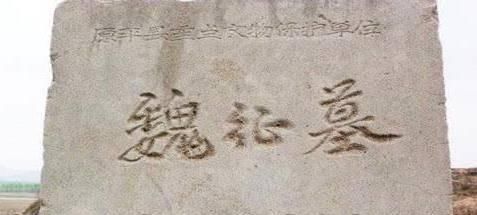 原平县重点文物保护单位
魏征墓